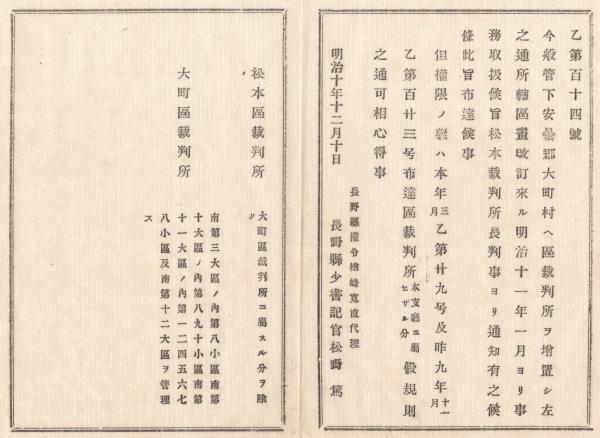 乙第百十四號
今般管下安曇郡大町村ヘ區裁判所ヲ増置シ左
之通所轄區畫改訂來ル明治十一年一月ヨリ事
務取扱候旨松本裁判所長判事ヨリ通知有之候
條此旨布達候事
但權限ノ義ハ本年三月乙第廿九号及昨九年十一月
乙第百廿三号布達區裁判所本支廳ニ屬セザル分假規則
之通可相心得事
明治十年十二月十日
長野縣權令楢崎寛直代理
長野縣少書記官松野篤
松本區裁判所
大町區裁判所ニ屬スル分ヲ除ク
大町區裁判所
南第三大區ノ內第八小區南第
十大區ノ內第八九十小區南第
十一大區ノ內第一二四五六七
八小區及南第十二大區ヲ管理
ス